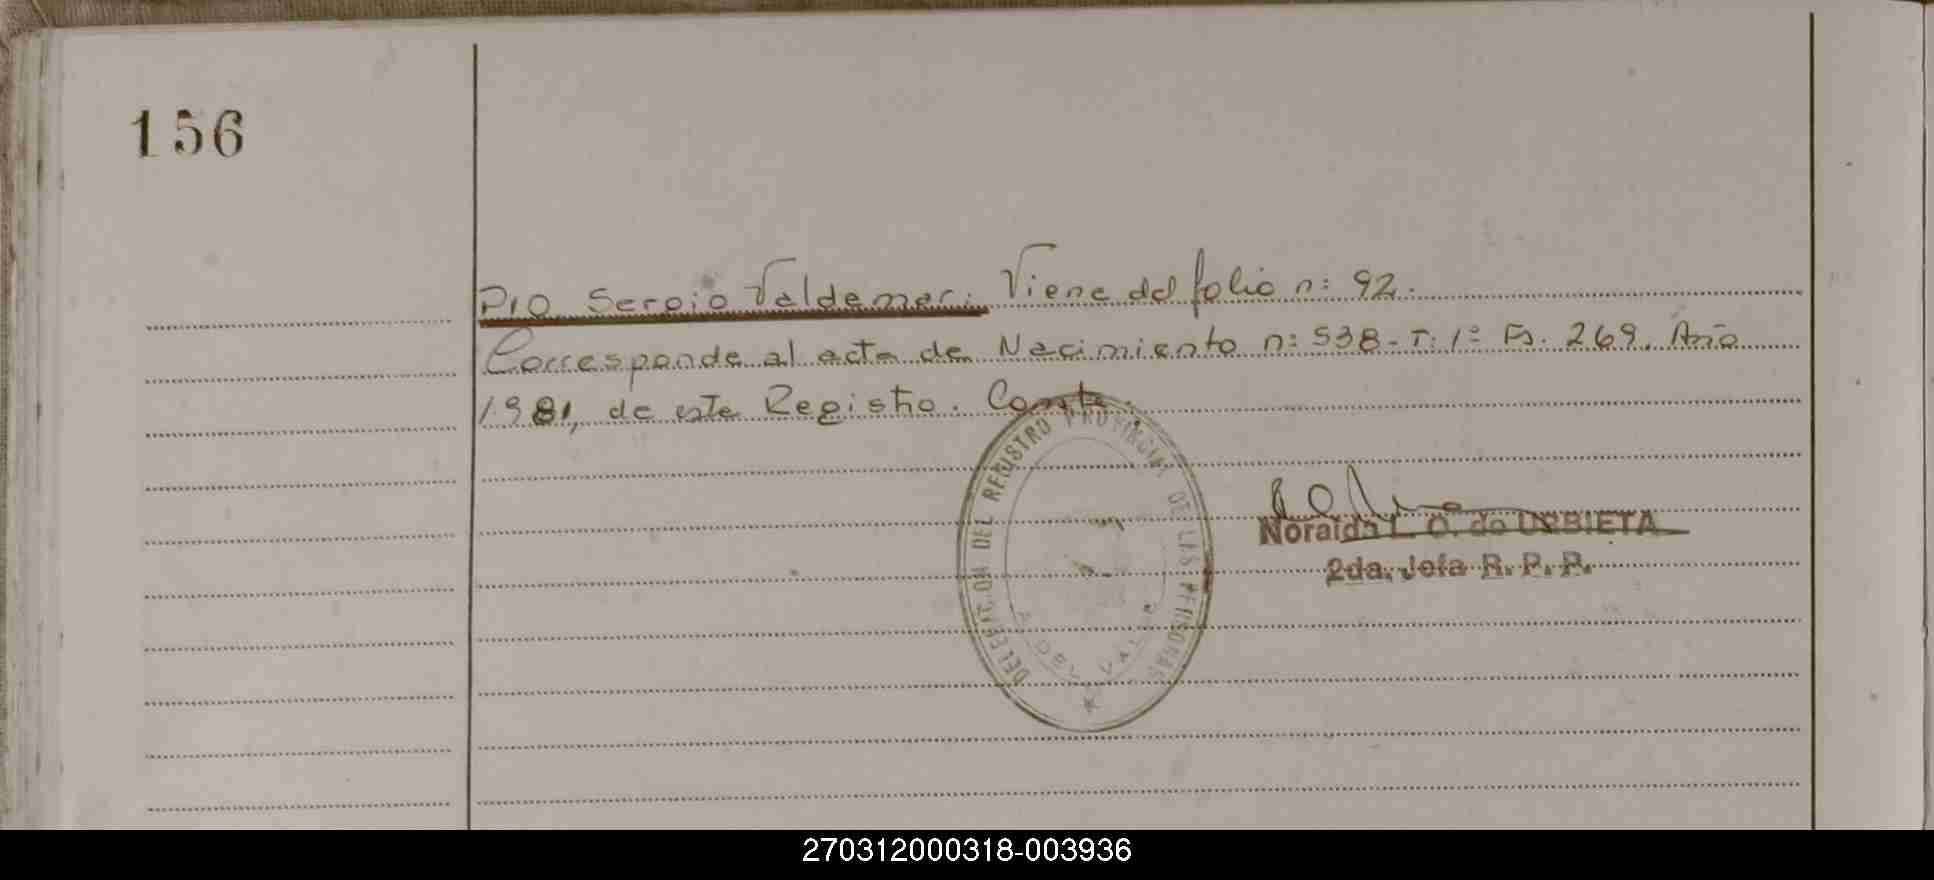 156
PIO Sergio Valdemar. Viene del folio n: 92.
Corresponde al acta de Nacimiento n: 538 - T: 1º Fs. 269. Año
1981, de este Registro. Conste.
DELEGACION DEL REGISTRO PROVINCIAL DE LAS PERSONAS
Noraida L. O. de URBIETA
2da. Jefa R. P. P.
270312000318-003936